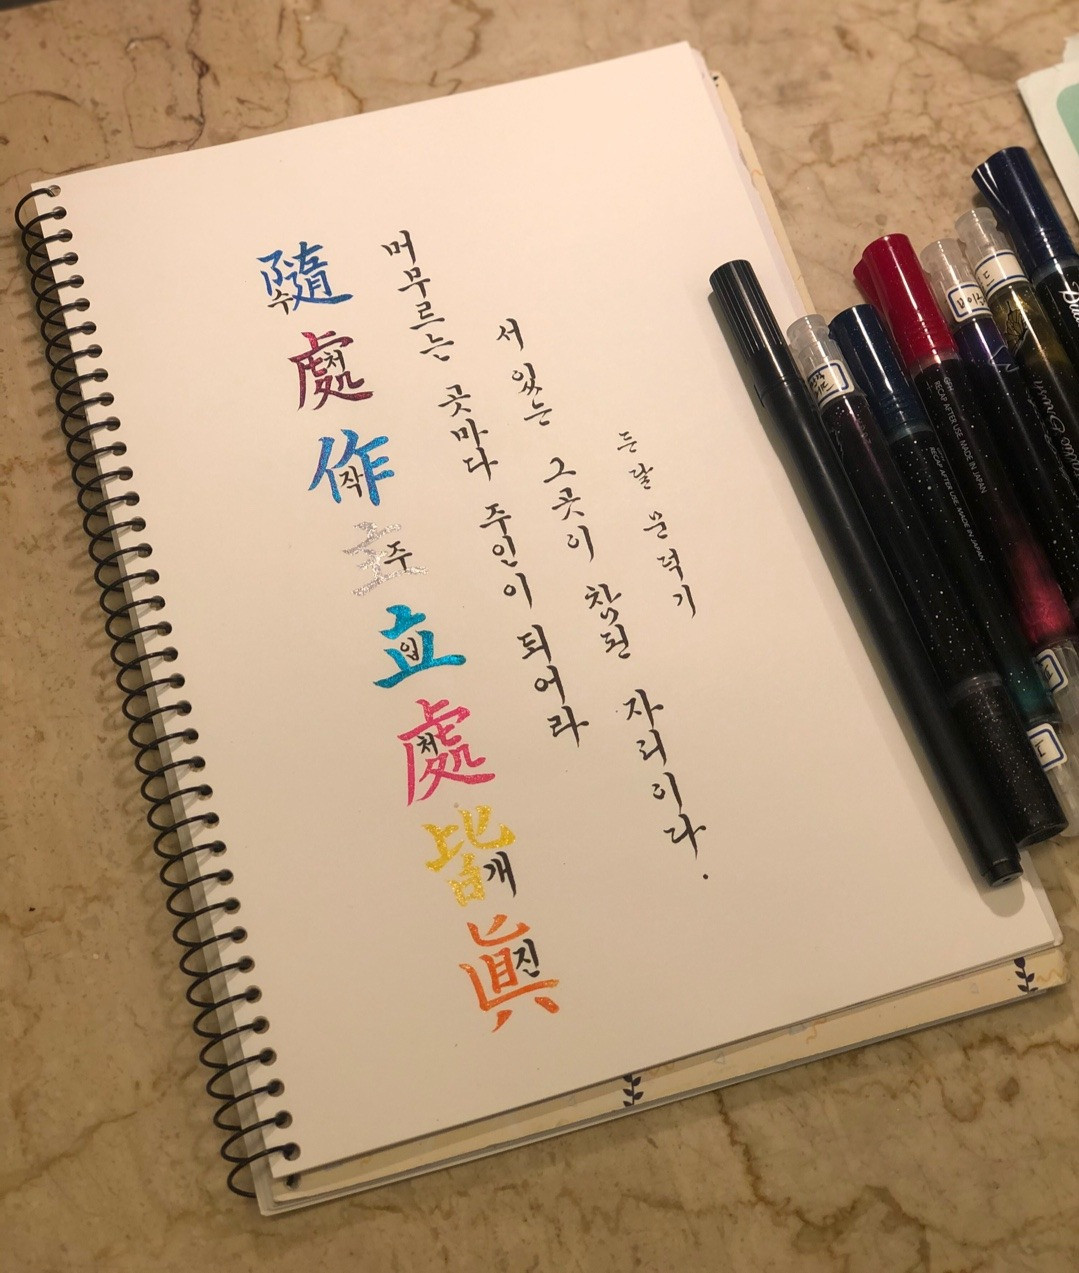 隨수
處처
作작
主주
立입
處처
皆개
眞진
머무르는 곳마다 주인이 되어라
서 있는 그곳이 참된 자리이다.
든달 문덕기
RECAP AFTER USE MADE IN JAPAN
RECAP AFTER USE MADE IN JAPAN